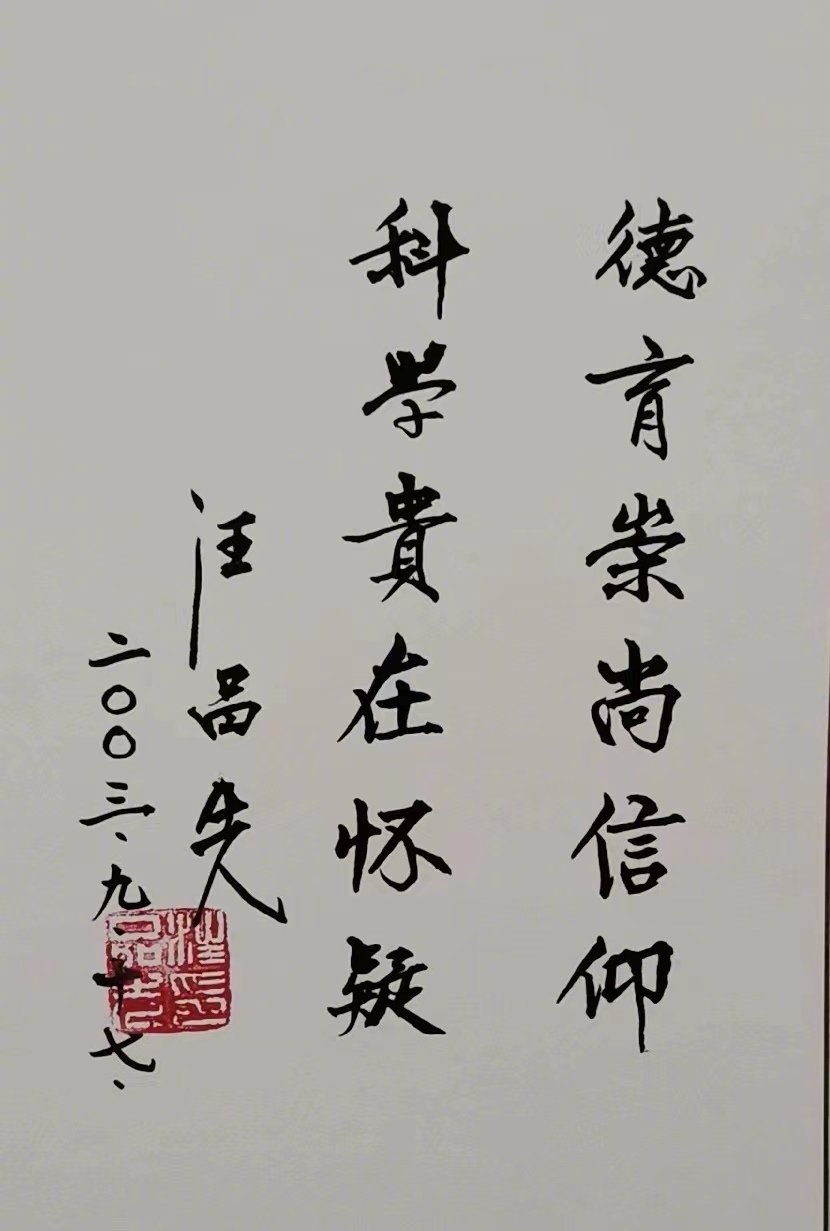 德育崇尚信仰
科學貴在怀疑
汪品先
二〇〇三.九.十七.